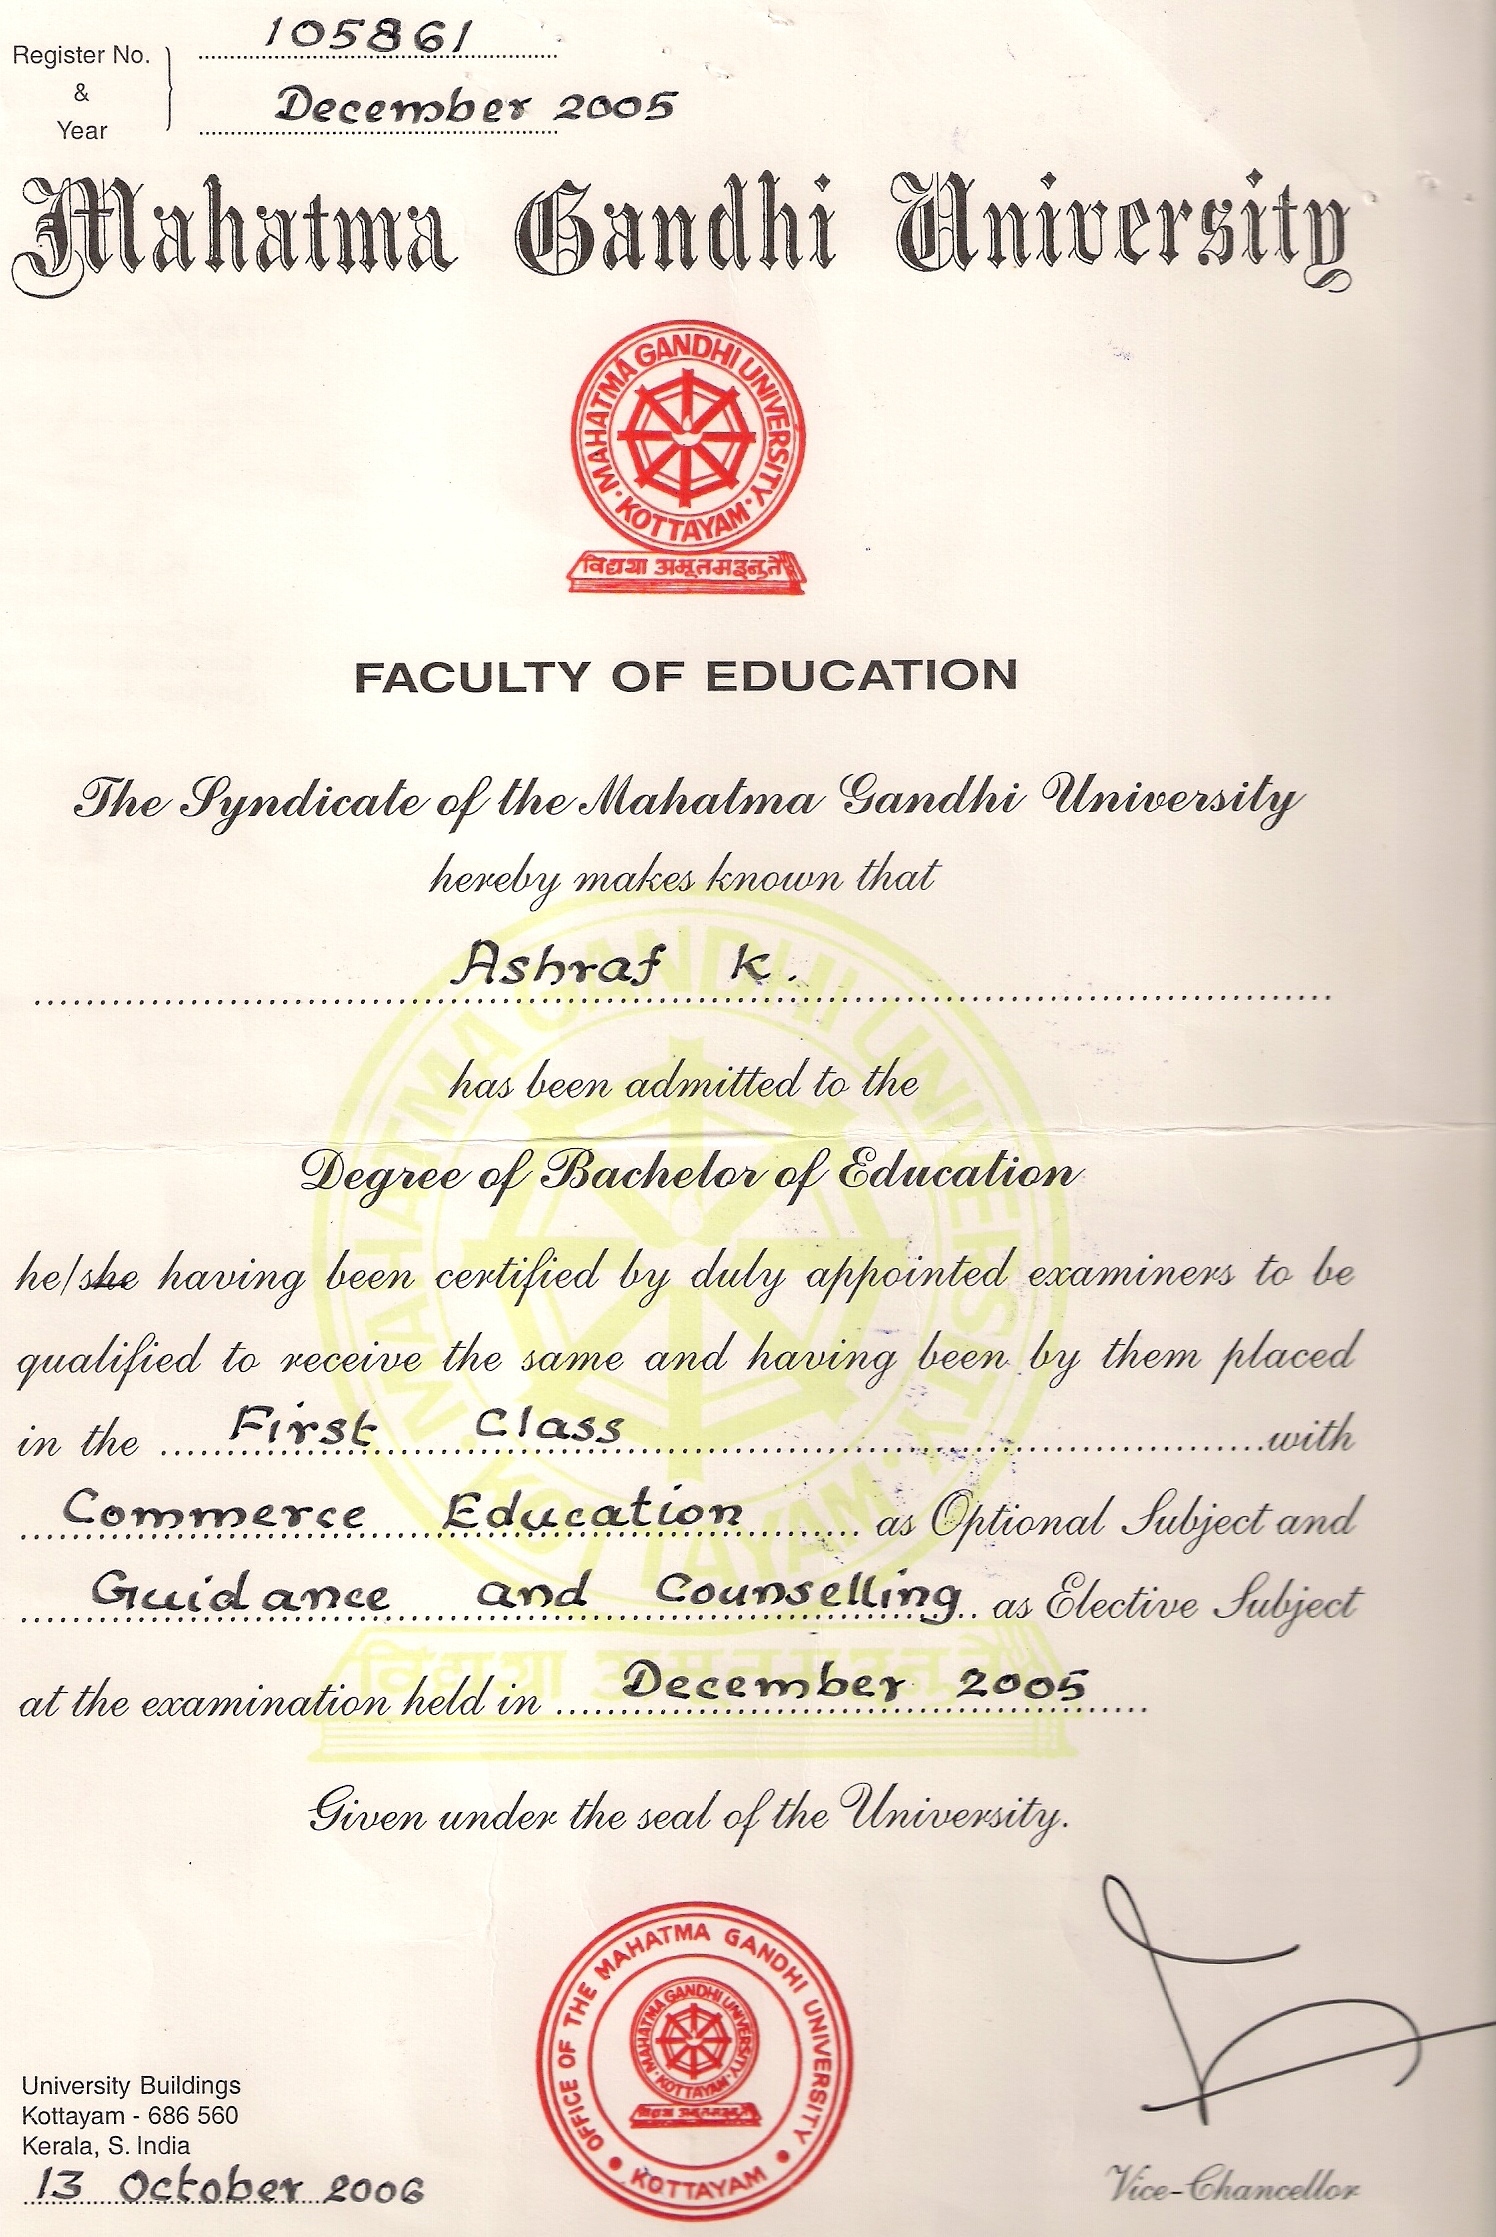 Register No. 105861
&
Year December 2005
Mahatma Gandhi University
MAHATMA GANDHI UNIVERSITY
KOTTAYAM
विद्यया अमृतमश्नुते
FACULTY OF EDUCATION
The Syndicate of the Mahatma Gandhi University
hereby makes known that
Ashraf K.
has been admitted to the
Degree of Bachelor of Education
he/she having been certified by duly appointed examiners to be
qualified to receive the same and having been by them placed
in the First Class with
Commerce Education as Optional Subject and
Guidance and Counselling as Elective Subject
at the examination held in December 2005
Given under the seal of the University.
OFFICE OF THE MAHATMA GANDHI UNIVERSITY
KOTTAYAM
MAHATMA GANDHI UNIVERSITY
KOTTAYAM
University Buildings
Kottayam - 686 560
Kerala, S. India
13 October 2006
Vice-Chancellor